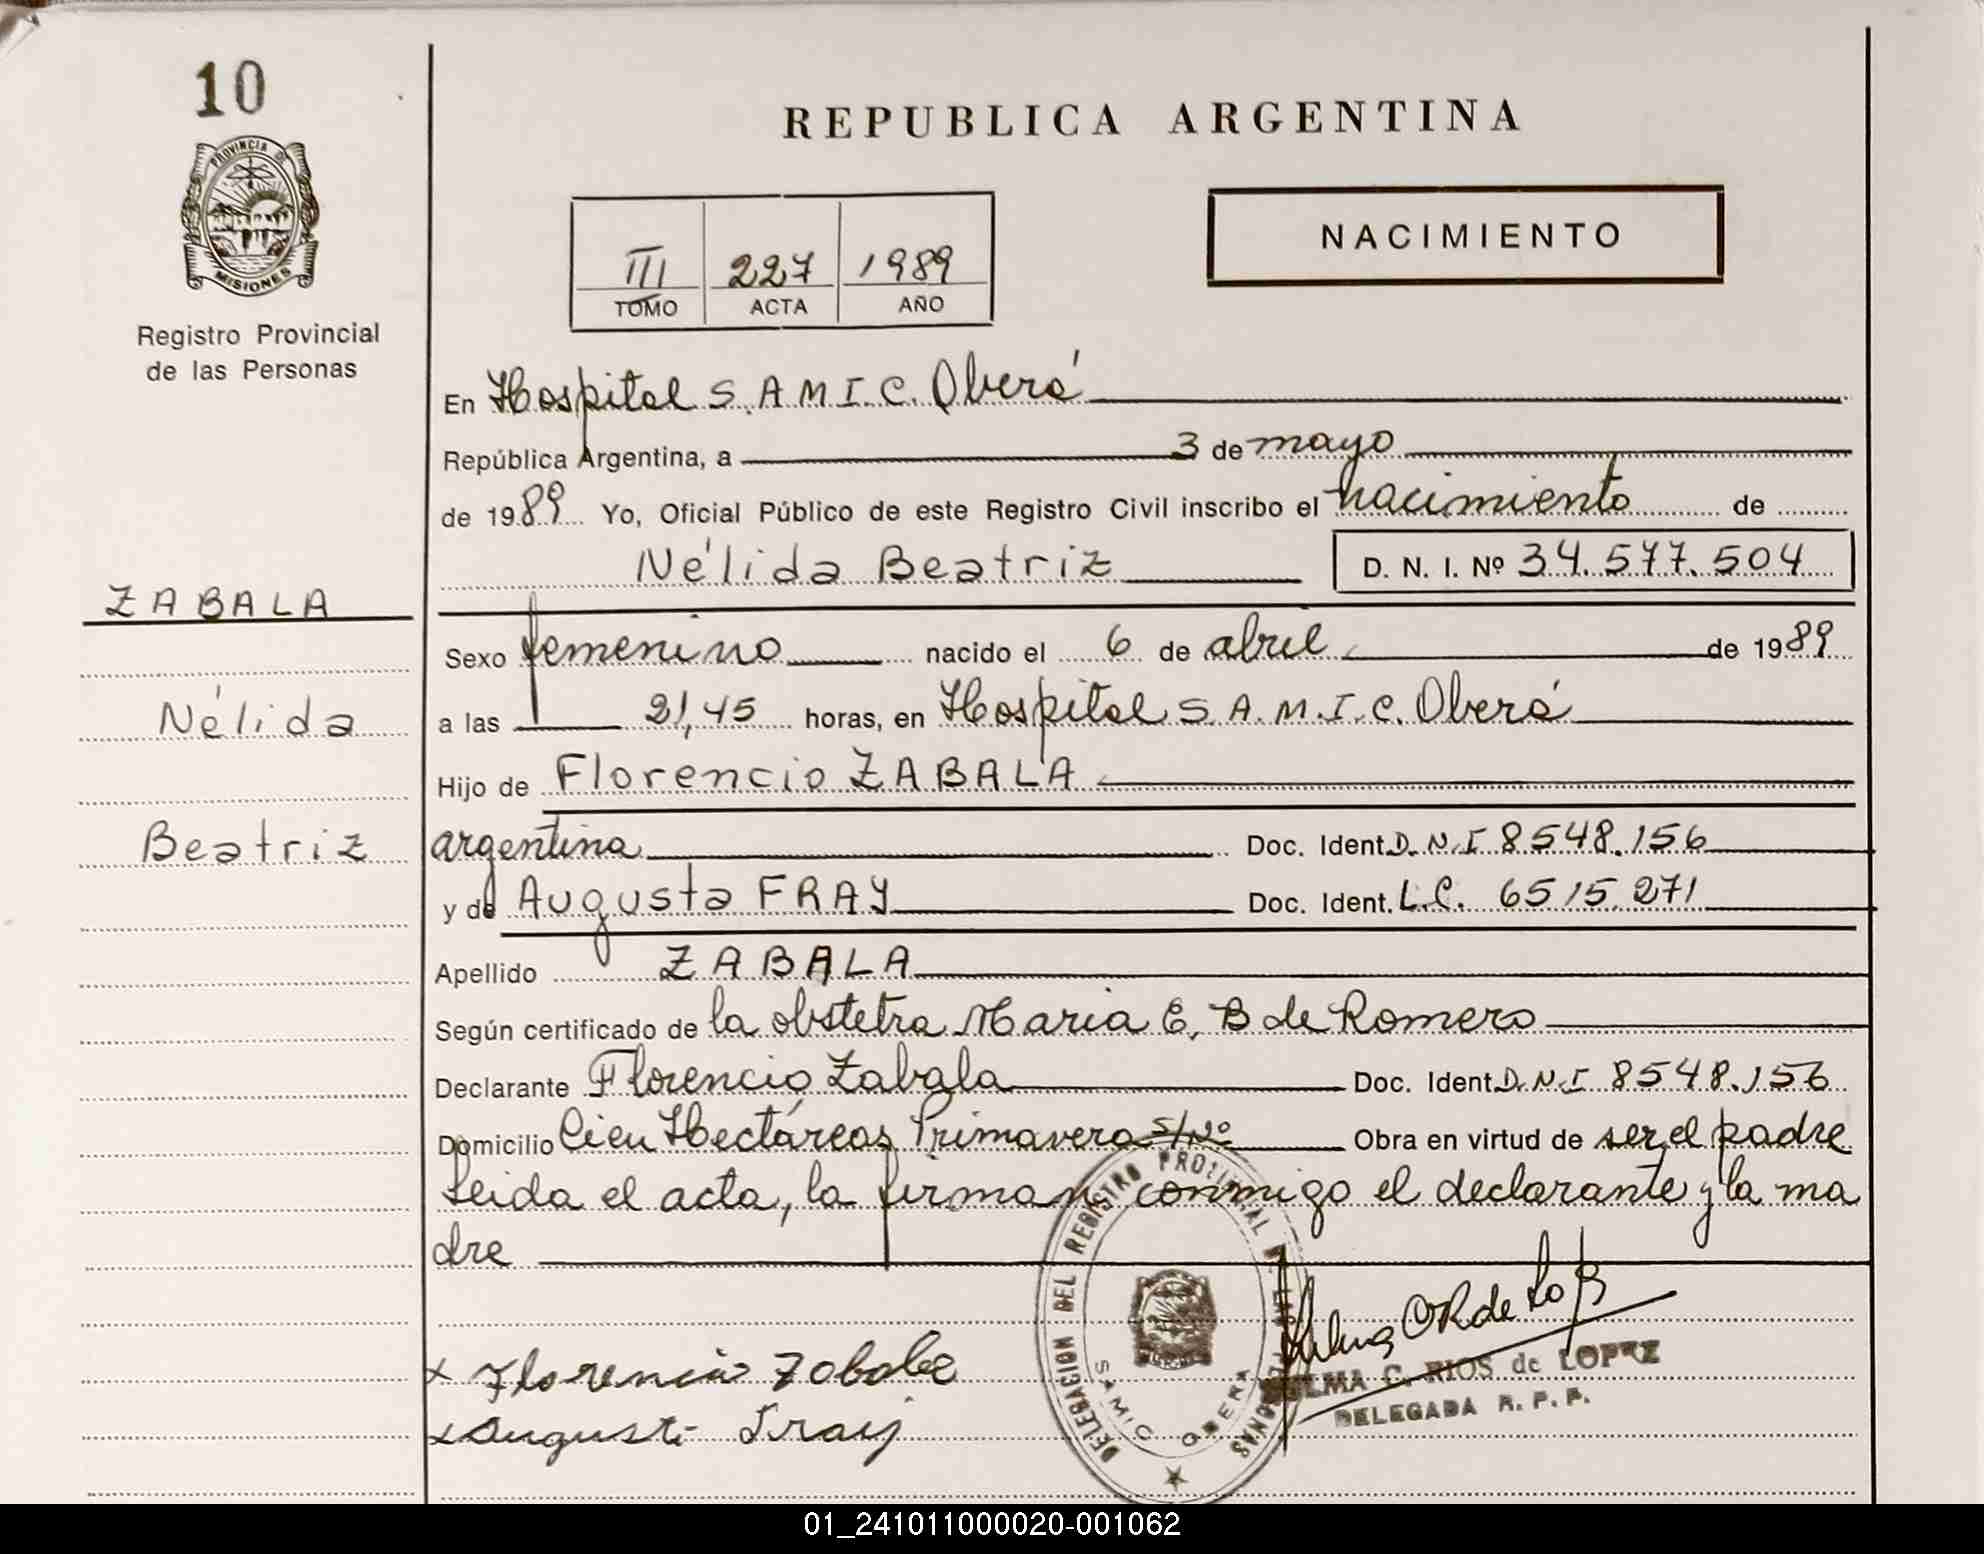 10
PROVINCIA DE
MISIONES
Registro Provincial
de las Personas
REPUBLICA ARGENTINA
NACIMIENTO
III 227 1989
TOMO ACTA AÑO
En Hospital S.A.M.I.C. Oberá
República Argentina, a 3 de mayo
de 1989 Yo, Oficial Público de este Registro Civil inscribo el nacimiento de
Nélida Beatriz D. N. I. Nº 34.577.504
ZABALA
Nélida
Beatriz
Sexo femenino nacido el 6 de abril de 1989
a las 21,45 horas, en Hospital S.A.M.I.C. Oberá
Hijo de Florencio ZABALA
argentina Doc. Ident. D.N.I 8548.156
y de Augusta FRAY Doc. Ident. L.C. 6515.271
Apellido ZABALA
Según certificado de la obstetra Maria E. B de Romero
Declarante Florencio Zabala Doc. Ident. D.N.I 8548.156
Domicilio Cien Hectáreas Primavera S/Nº Obra en virtud de ser el padre
Leida el acta, la firman conmigo el declarante y la ma
dre
x Florencio Zabala
x Augusta Fray
DELEGACION DEL REGISTRO PROVINCIAL DE LAS PERSONAS
SAMIC OBERA
C. RIOS de LOPEZ
DELEGADA R. P. P.
01_241011000020-001062